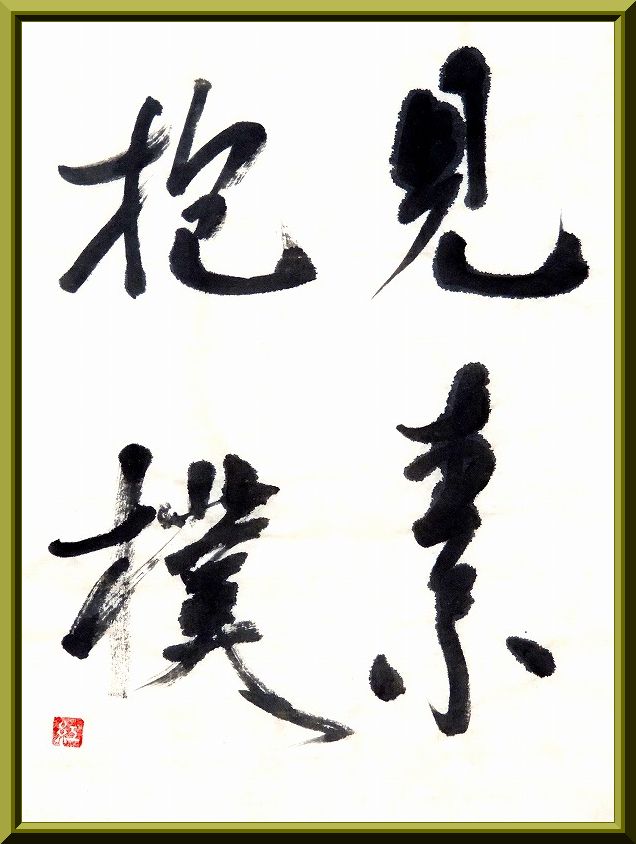 見素
抱樸